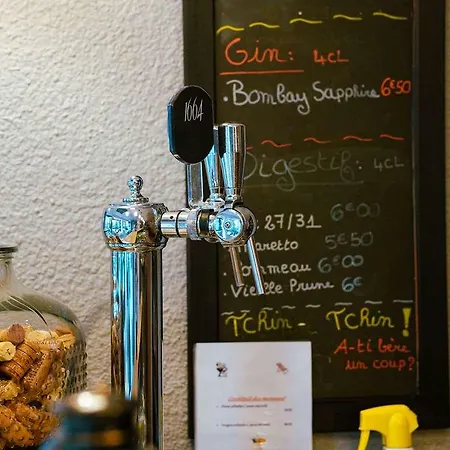 Gin: 4CL
. Bombay Sapphire 6€50
Digestif: 4CL
27/31 6€00
5€50
6€00
. Vieille Prune 6€
TChin - TChin !
A-ti bère
un coup?
1664